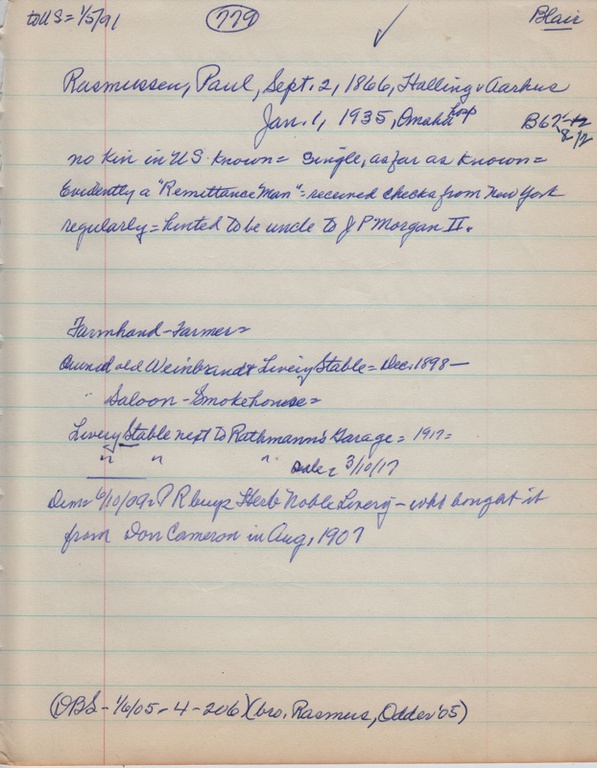 to US = 1/5/91 779 Blair
Rasmussen, Paul, Sept. 2, 1866, Halling v Aarhus
Jan. 1, 1935, Omaha Hosp B62
8/2
no kin in US known = Single, as far as known =
Evidently a "Remittance Man" = received checks from New York
regularly = hinted to be uncle to J P Morgan II.
Farmhand - Farmer =
Owned old Weinbrandt Livery Stable = Dec. 1898 —
" Saloon - Smokehouse =
Livery Stable next to Rathmann's Garage = 1917 =
" " " Sale = 3/10/17
Dem = 6/10/09 = P R buys Herb Noble Livery - who bought it
from Don Cameron in Aug, 1907
(DBS - 1/6/05 - 4 - 206) (bro. Rasmus, Odder '05)